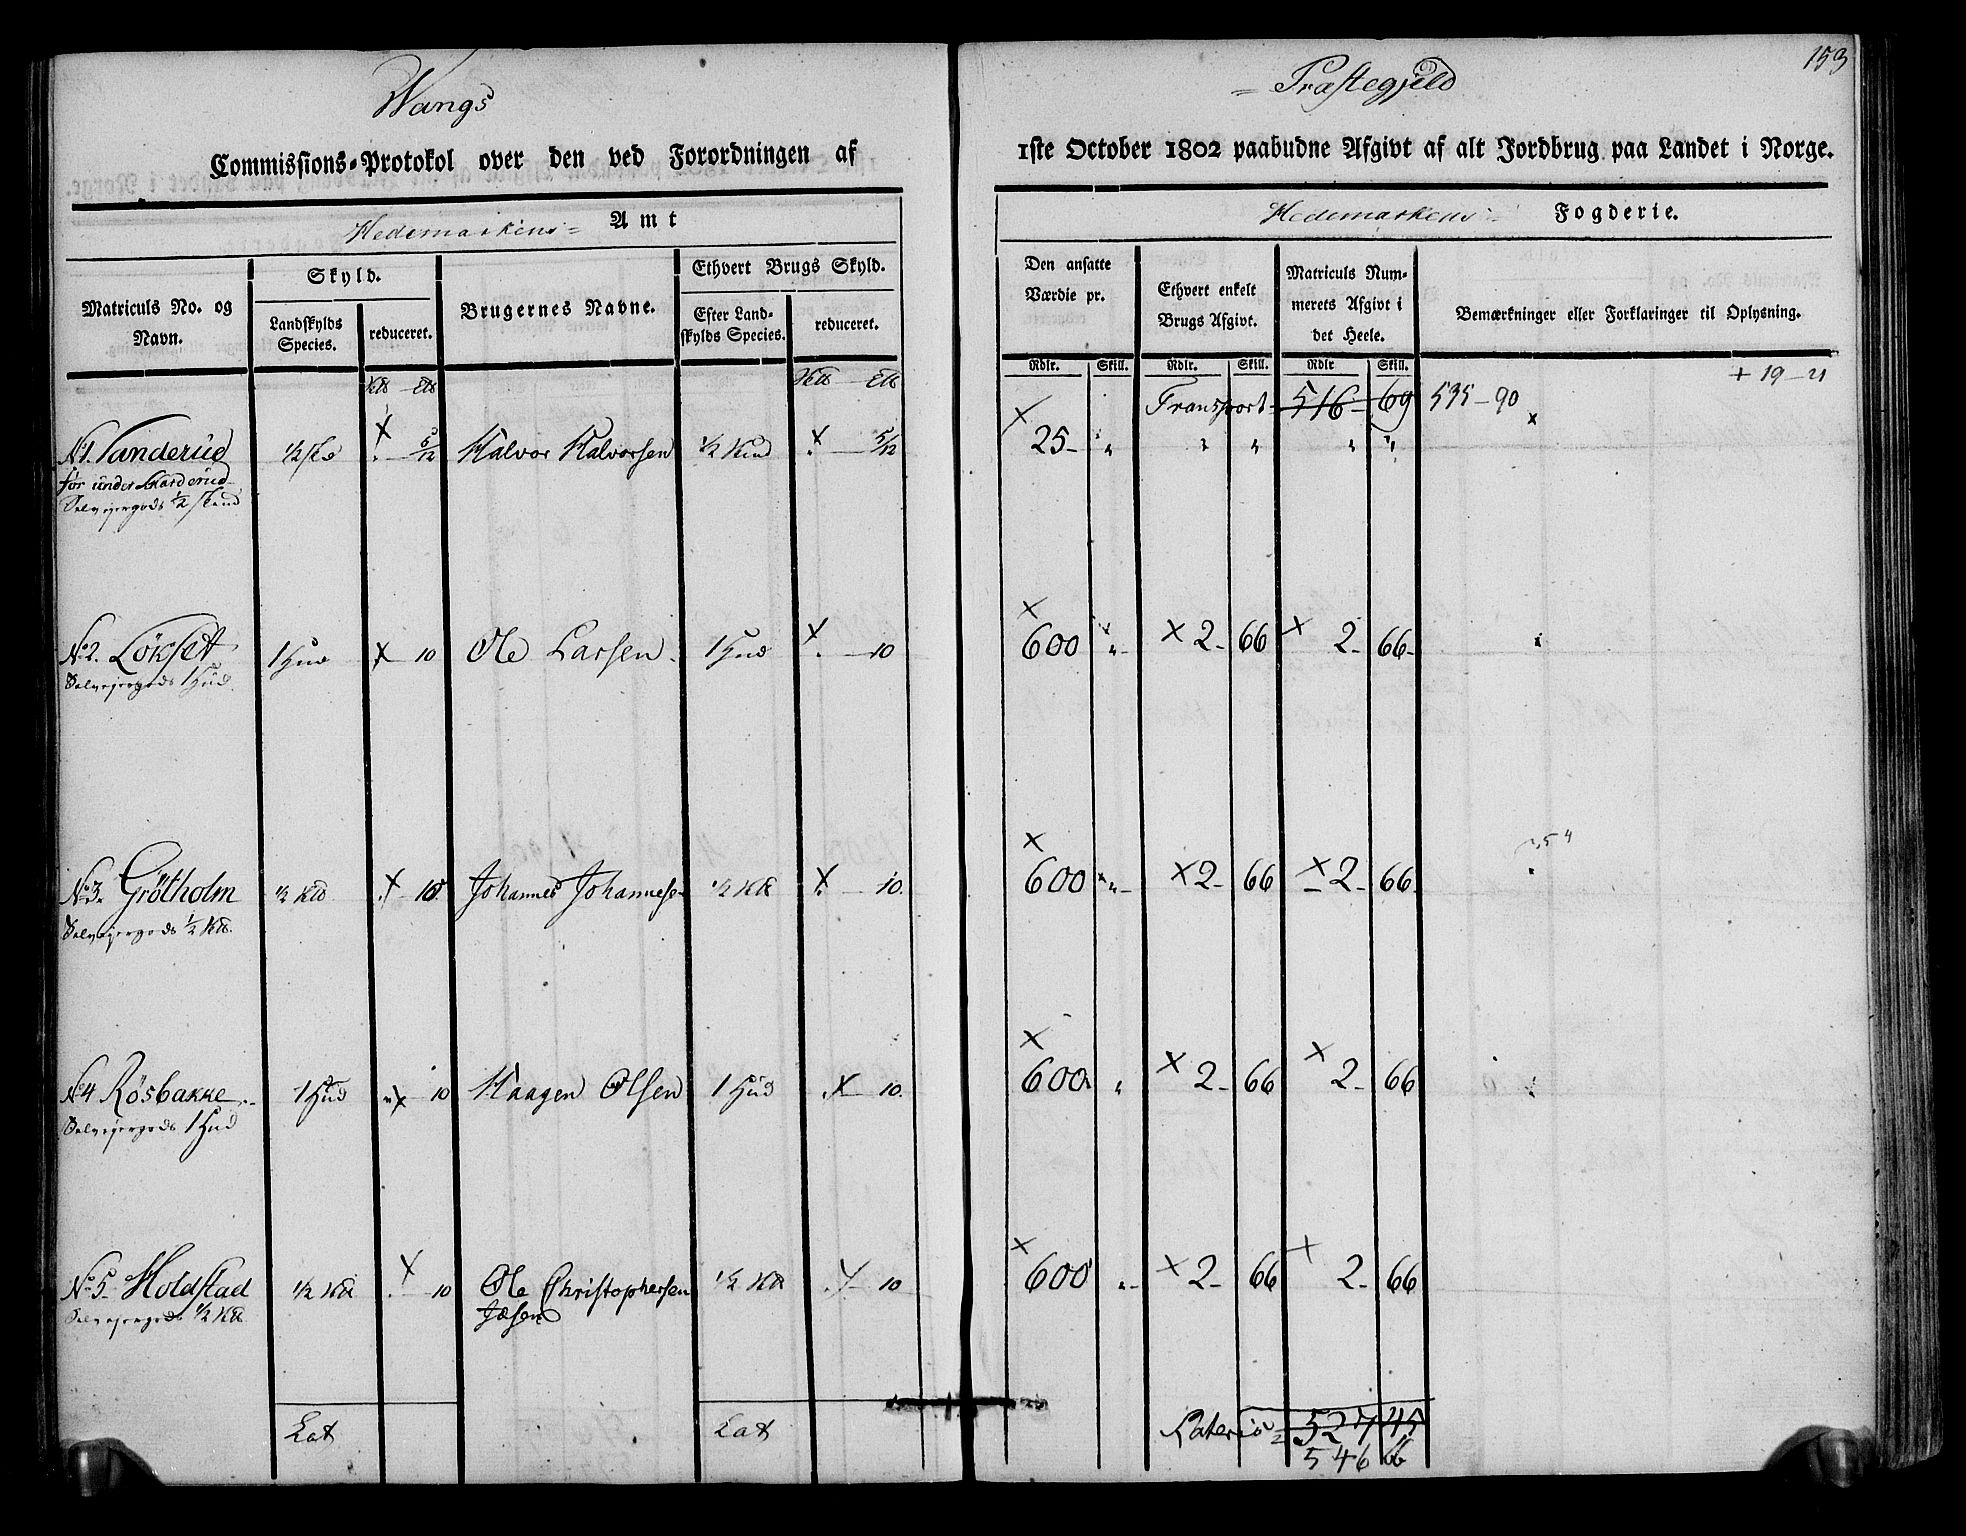 153
Wangs = Præstegjeld
Commissions-Protokol over den ved Forordningen af 1ste October 1802 paabudne Afgivt af alt Jordbrug paa Landet i Norge.
Hedemarkens = Amt
Hedemarkens = Fogderie.
Matriculs No. og Navn.
Skyld.
Landskylds Species.
reduceret.
Brugernes Navne.
Ethvert Brugs Skyld.
Efter Landskylds Species.
reduceret.
Den ansatte Værdie pr.
Ethvert enkelt Brugs Afgivt.
Matriculs Nummerets Afgivt i det Heele.
Bemærkninger eller Forklaringer til Oplysning.
Rdlr. Skill. Rdlr. Skill. Rdlr Skill.
+ 19 - 21
Transport - 516 - 69 535 - 90
No 1. Vanderud 5/12 Halvor Halvorsen 5/12 25 - „ „ „ „ „
før under
Selvejergods 1/2
No 2. Lökset 1 Hud 10 Ole Larsen 1 Hud 10 600 „ - 2 - 66 2 - 66 -
Selvejergods 1 Hud
No 3. Grötholm 1/2 10 Johannes Johannesen 1/2 10. 600 „ - 2 - 66 2 - 66 -
Selvejergods 1/2
No 4 Rösbakke 1 Hud 10 Haagen Olsen 1 Hud 10. 600 „ 2 - 66 2 - 66
Selvejergods 1 Hud
No 5. Holdstad 1/2 10 Ole Christophersen 1/2 10 600 „ - 2 - 66 2 - 66
Selvejergods 1/2
Lat Lat 527 45
546 66